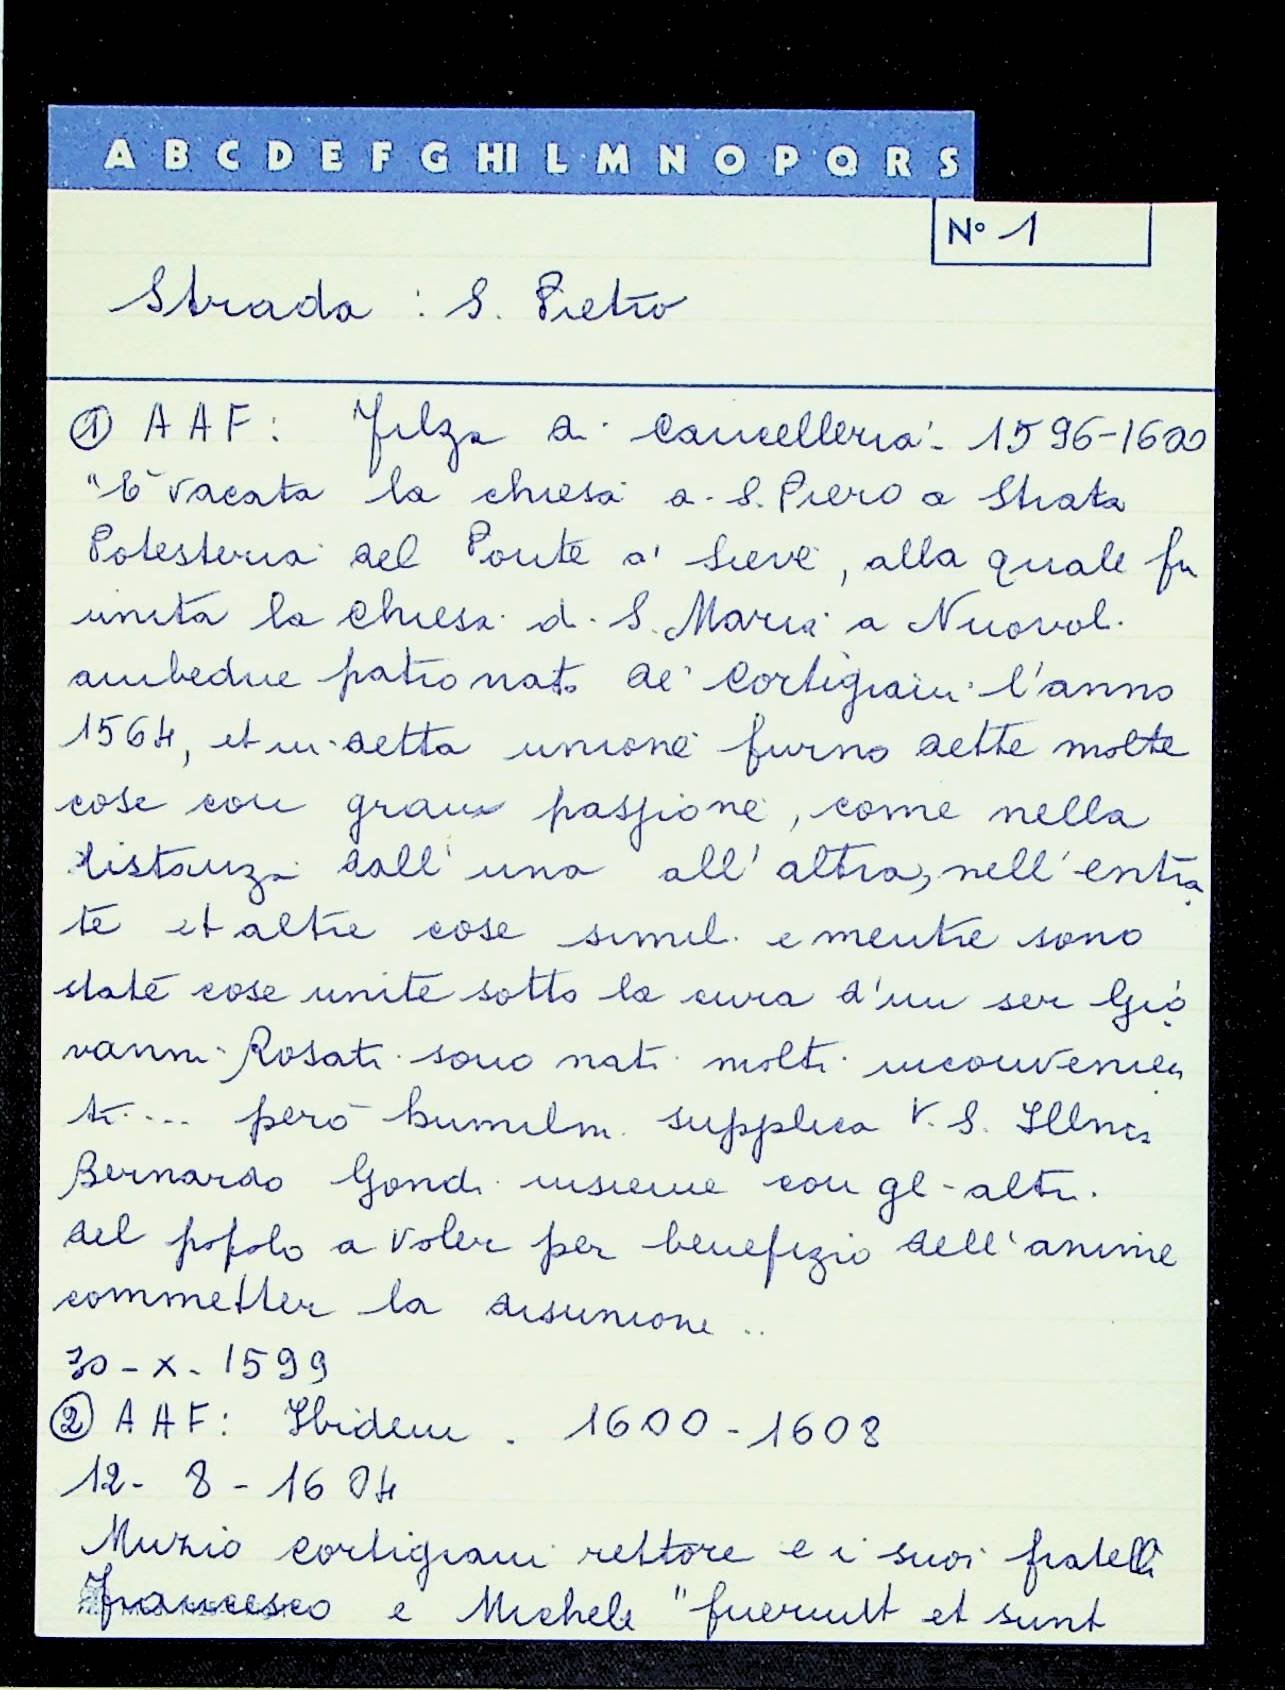 A B C D E F G HI L M N O P Q R S
N° 1
Strada : S. Pietro
① AAF: Filza di Cancelleria - 1596-1600
"È vacata la chiesa di S. Piero a Strata
Potesteria del Ponte a' Sieve, alla quale fu
unita la chiesa di S. Maria a Nuovoli
ambedue patronato de' Cortigiani l'anno
1564, et in detta unione furno dette molte
cose con gran passione, come nella
distanza dall'una all'altra, nell'entra
te et altre cose simili e mentre sono
state cose unite sotto la cura d'un ser Gio
vanni Rosati sono nati molti inconvenien
ti .... però humilm. supplica V. S. Ill.ma
Bernardo Gondi insieme con gl'altri
del popolo a voler per benefizio dell'anime
commetter la disunione ..
30 - X - 1599
② AAF: Ibidem . 1600 - 1608
12 - 8 - 1604
Muzio Cortigiani rettore e i suoi fratelli
Francesco e Michele "fuerunt et sunt